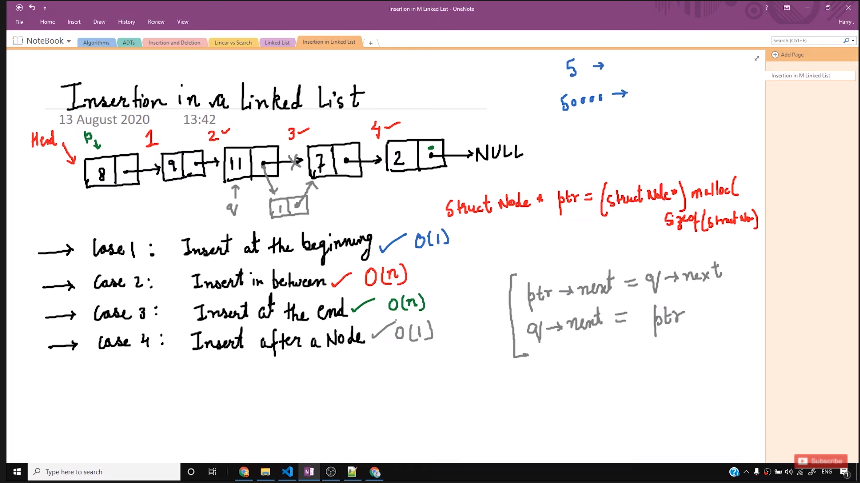 Insertion in M Linked List - OneNote
Harry .
File Home Insert Draw History Review View
NoteBook Algorithms ADTs Insertion and Deletion Linear vs Search Linked List Insertion in Linked List +
Search (Ctrl+E)
Add Page
Insertion in M Linked List
Insertion in a Linked List
13 August 2020 13:42
5 →
50000 →
Head P 1 2 3 4
8 9 11 7 2 → NULL
q 1
struct Node * ptr = (struct Node*) malloc(
sizeof(struct Node)
→ Case 1: Insert at the beginning ✓ O(1)
→ Case 2: Insert in between ✓ O(n)
→ Case 3: Insert at the end ✓ O(n)
→ Case 4: Insert after a Node ✓ O(1)
ptr → next = q → next
q → next = ptr
Subscribe
Type here to search